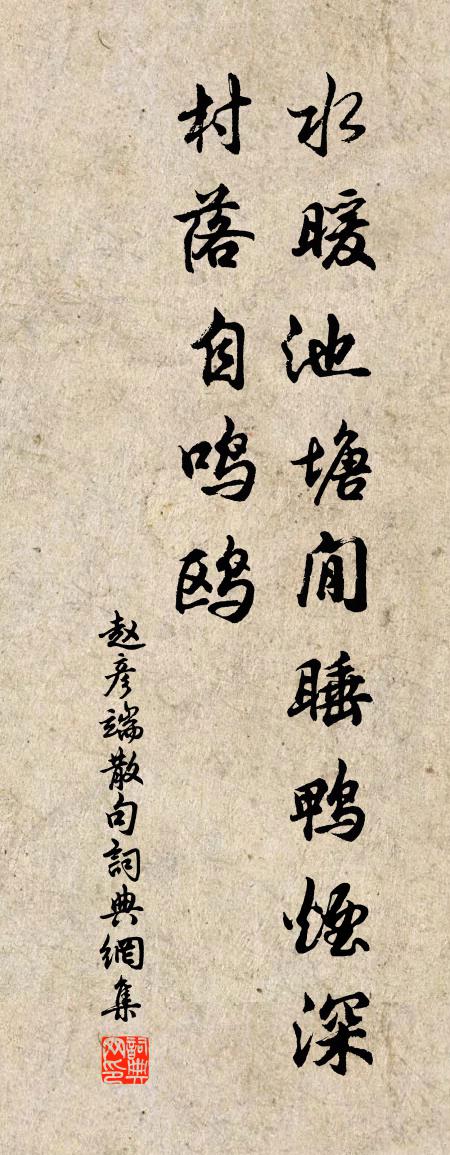 水暖池塘閒睡鸭煙深
村落自鸣鸥
赵彦端散句詞典網集
詞典网印